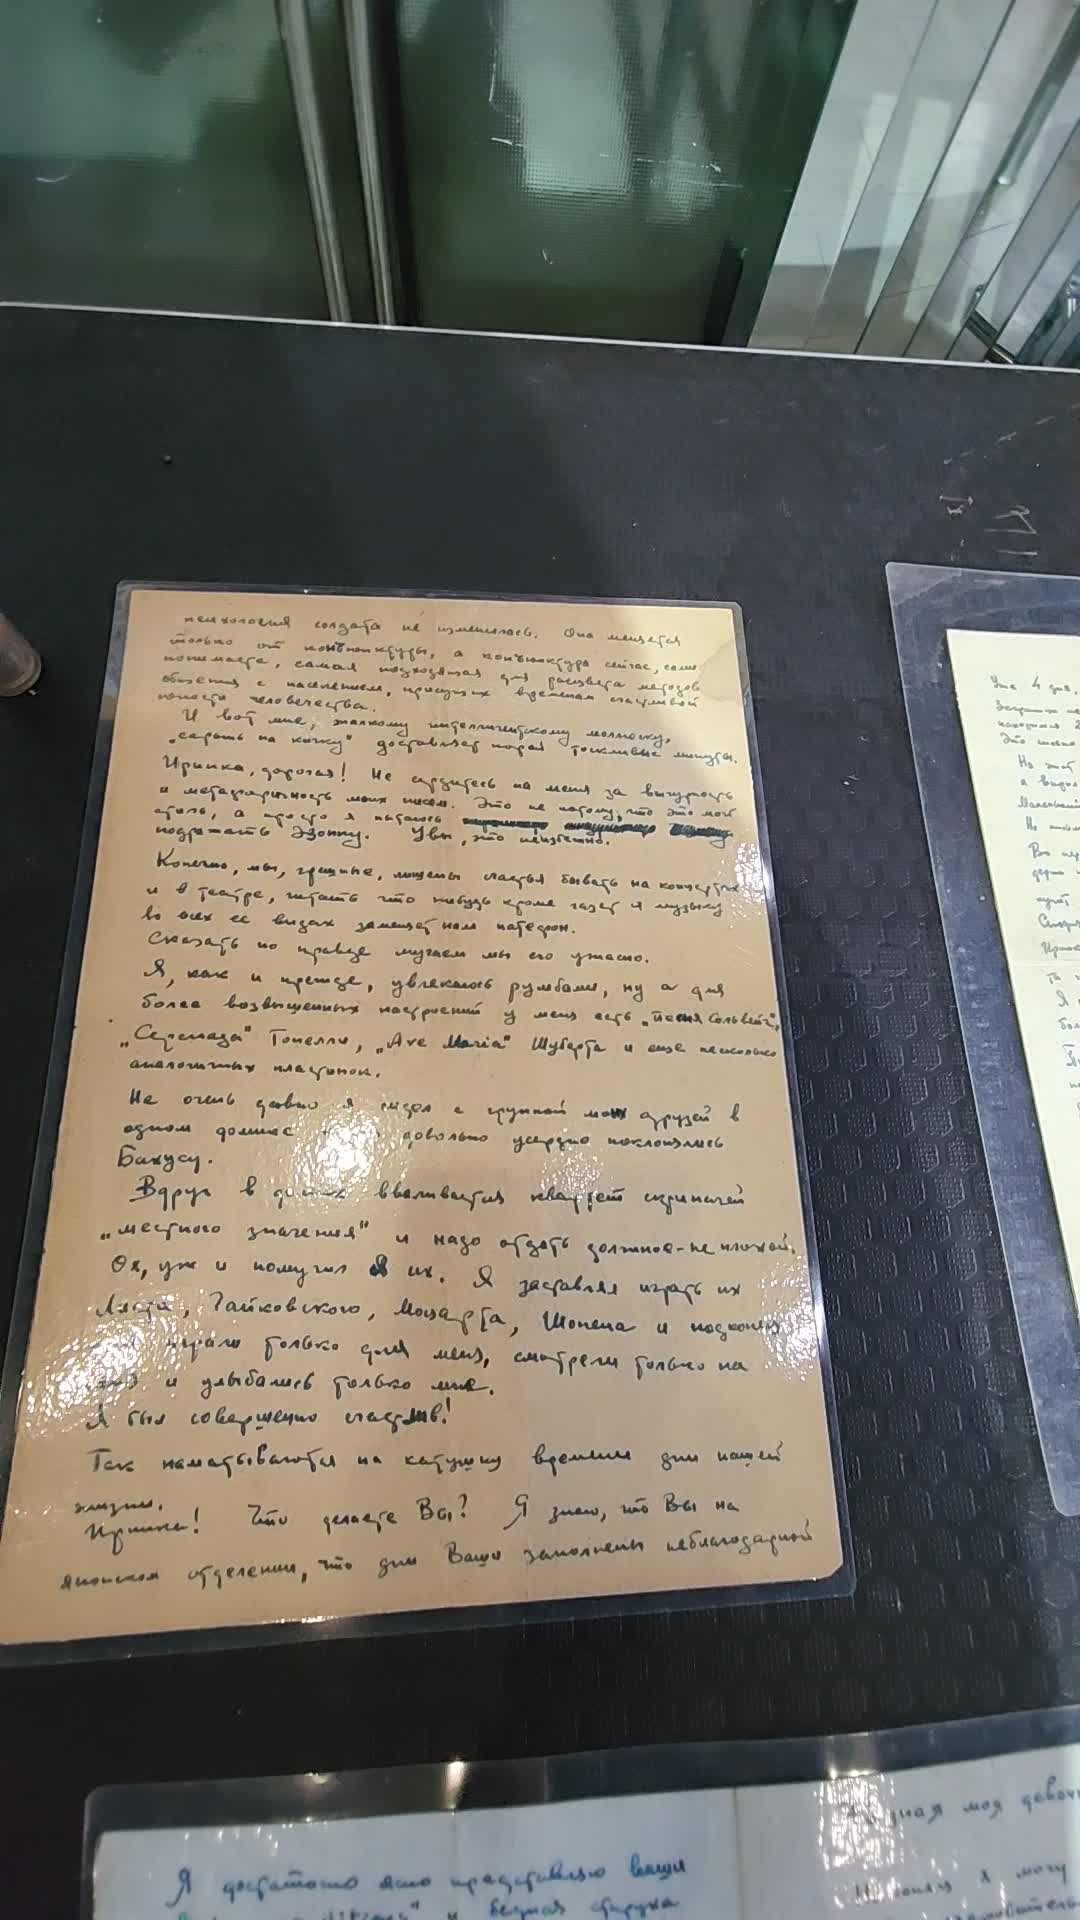 психология солдата не изменилась. Она меняется
только от конъюнктуры, а конъюнктура сейчас, сами
понимаете, самая подходящая для расцвета методов
общения с населением, присущих временам счастливой
юности человечества.
И вот мне, жалкому интеллигентскому моллюску,
„сарынь на кичку" доставляет порой тоскливые минуты.
Иринка, дорогая! Не сердитесь на меня за вычурность
и метафоричность моих писем. Это не потому, что это мой
стиль, а просто я пытаюсь
подражать Эзопу. Увы, это неизбежно.
Конечно, мы, грешные, лишены счастья бывать на концертах
и в театре, читать что нибудь кроме газет и музыку
во всех ее видах заменяет нам патефон.
Сказать по правде мучаем мы его ужасно.
Я, как и прежде, увлекаюсь румбами, ну а для
более возвышенных настроений у меня есть „Песня Сольвейг",
„Серенада" Тоселли, „Ave Maria" Шуберта и еще несколько
аналогичных пластинок.
Не очень давно я сидел с группой моих друзей в
одном домике довольно усердно поклонялись
Бахусу.
Вдруг в домик вваливается квартет скрипачей
„местного значения" и надо отдать должное - не плохой.
Ох, уж и помучил я их. Я заставлял играть их
Листа, Чайковского, Моцарта, Шопена и под конец
играли только для меня, смотрели только на
и улыбались только мне.
Я был совершенно счастлив!
Так наматываются на катушку времени дни нашей
жизни.
Иринка! Что делаете Вы? Я знаю, что Вы на
японском отделении, что дни Ваши заполнены неблагодарной
Уже 4 дня,
находимся
Это
Но этот
а
Маленький
Но
Я
Я достаточно ясно представляю ваши
и бедная старуха
моя девоч
я могу